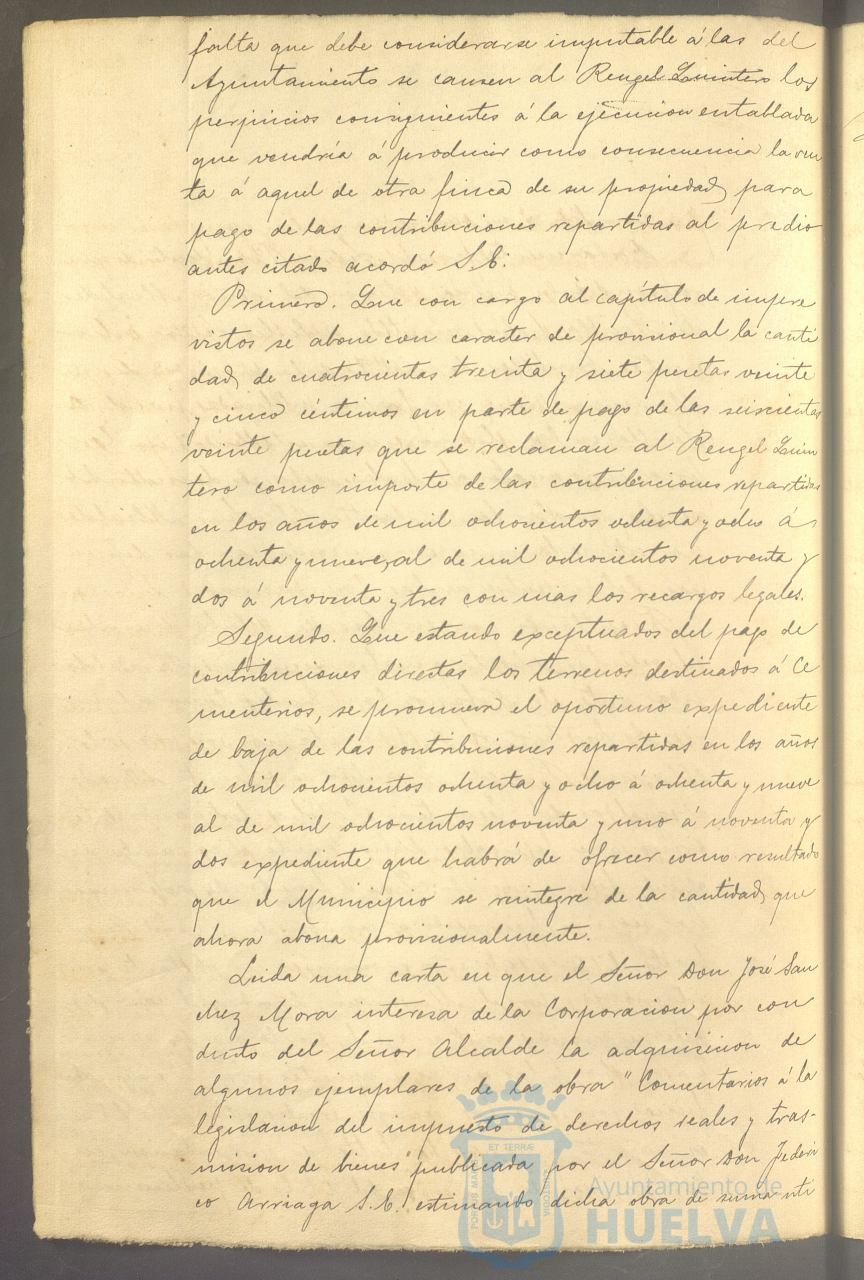 falta que debe considerarse imputable á las del
Ayuntamiento se causen al Rengel Quintero los
perjuicios consiguientes á la ejecucion entablada
que vendría á producir como consecuencia la ven
ta á aquel de otra finca de su propiedad para
pago de las contribuciones repartidas al predio
antes citado acordó S.E.
Primero. Que con cargo al capítulo de impre
vistos se abone con caracter de provisional la canti
dad de cuatrocientas treinta y siete pesetas veinte
y cinco céntimos en parte de pago de las seiscientas
veinte pesetas que se reclaman al Rengel Quin
tero como importe de las contribuciones repartidas
en los años de mil ochocientos ochenta y ocho á
ochenta y nueve, al de mil ochocientos noventa y
dos á noventa y tres con mas los recargos legales.
Segundo. Que estando exceptuados del pago de
contribuciones directas los terrenos destinados á Ce
menterios, se promueva el oportuno expediente
de baja de las contribuciones repartidas en los años
de mil ochocientos ochenta y ocho á ochenta y nueve
al de mil ochocientos noventa y uno á noventa y
dos expediente que habrá de ofrecer como resultado
que el Municipio se reintegre de la cantidad que
ahora abona provisionalmente.
Leida una carta en que el Señor Don José San
chez Mora interesa de la Corporacion por con
ducto del Señor Alcalde la adquisicion de
algunos ejemplares de la obra "Comentarios á la
legislacion del impuesto de derechos reales y tras-
mision de bienes" publicada por el Señor Don Federi
co Arriaga S.E. estimando dicha obra de suma uti
PORTUS MARIS ET TERRÆ CUSTODIA
Ayuntamiento de
HUELVA